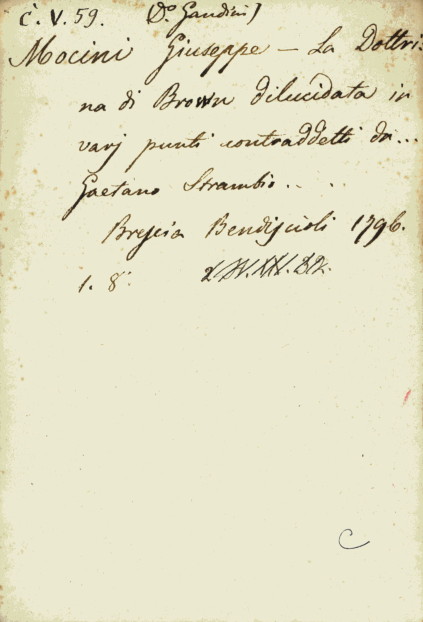 C. V. 59. (Do. Gandini)
Mocini Giuseppe - La Dottri-
na di Brown dilucidata in
varj punti contraddetti da...
Gaetano Strambio.. . .
Brescia Bendiscioli 1796.
1. 8.°
C